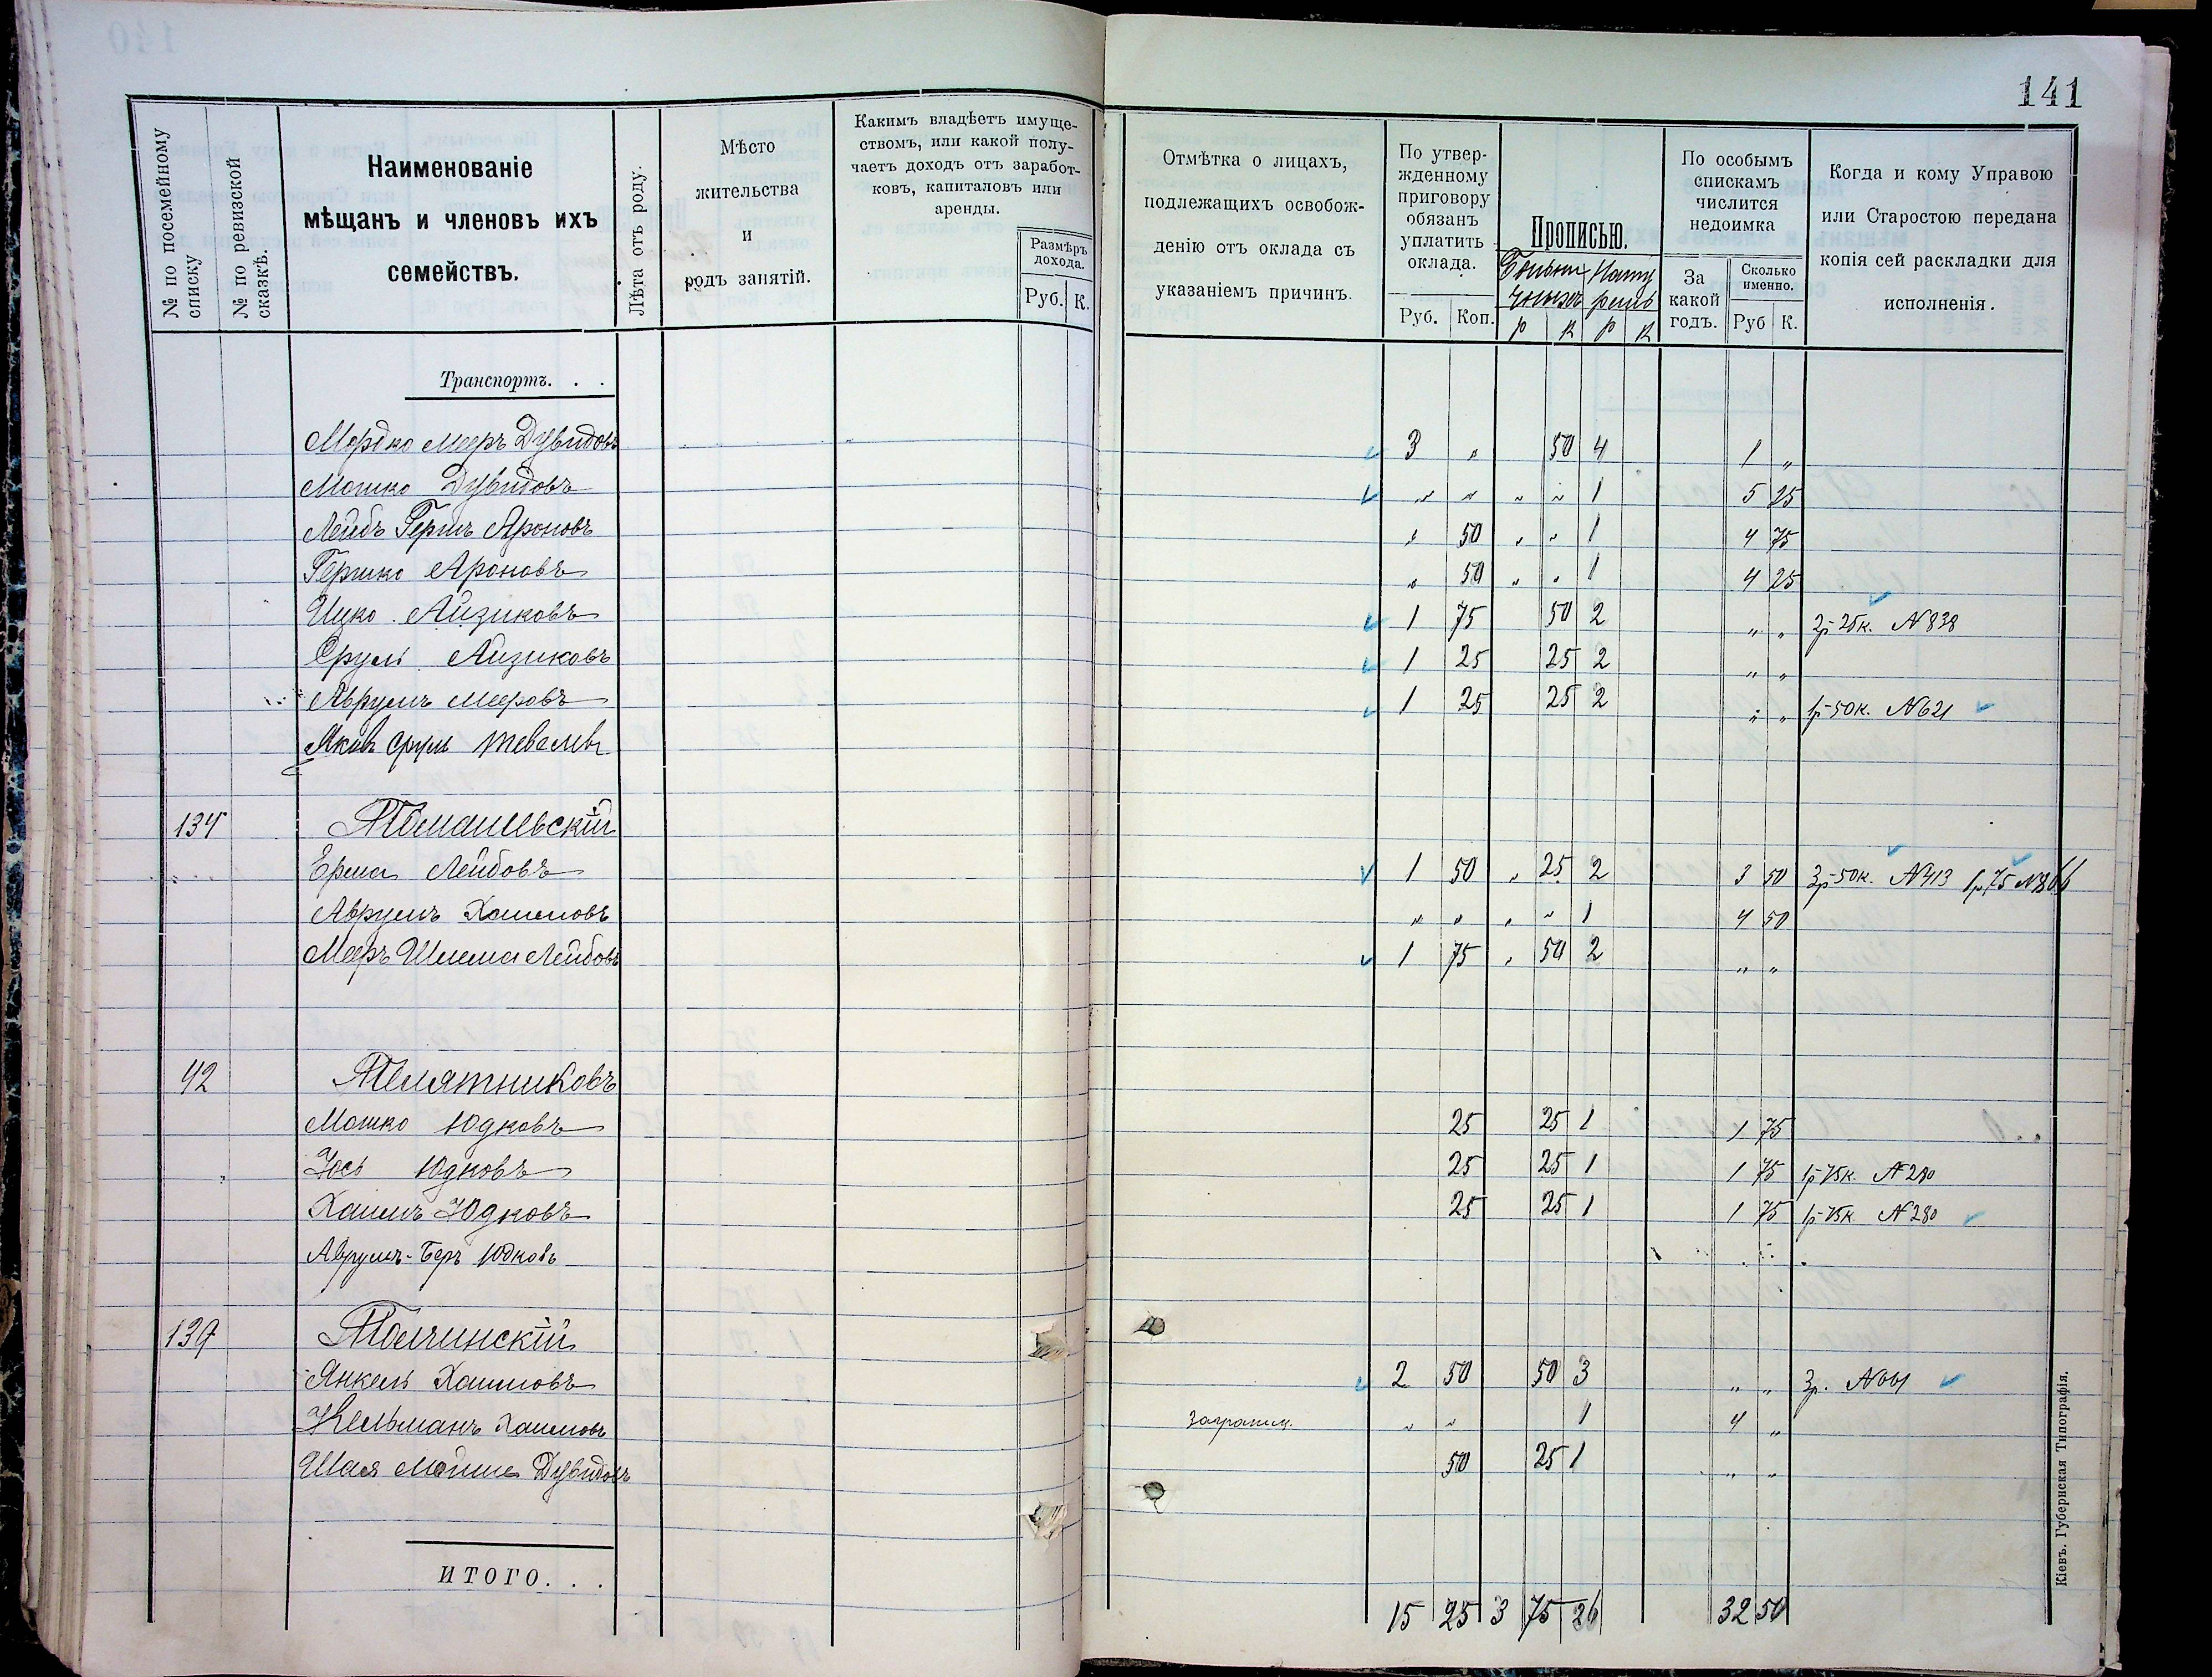 141
№ по посемейному списку
№ по ревизской сказкѣ.
Наименованіе мѣщанъ и членовъ ихъ семействъ.
Лѣта отъ роду.
Мѣсто жительства и родъ занятій.
Какимъ владѣетъ имуществомъ, или какой получаетъ доходъ отъ заработковъ, капиталовъ или аренды.
Размѣръ дохода.
Руб. К.
Отмѣтка о лицахъ, подлежащихъ освобожденію отъ оклада съ указаніемъ причинъ.
По утвержденному приговору обязанъ уплатить оклада.
Руб. Коп.
Прописью.
Р К Р К
По особымъ спискамъ числится недоимка
За какой годъ.
Сколько именно.
Руб К.
Когда и кому Управою или Старостою передана копія сей раскладки для исполненія.
Транспортъ. . .
Мордко Мееръ Дувидовъ 3 „ 50 4 1 „
Мошко Дувидовъ „ „ „ „ 1 5 25
Лейбъ Гершъ Ароновъ „ 50 „ „ 1 4 75
Гершко Ароновъ „ 50 „ „ 1 4 25
Ицко Айзиковъ 1 75 50 2 „ „ 2р 25к. N 838
Сруль Айзиковъ 1 25 25 2 „ „
Аврумъ Мееровъ 1 25 25 2 „ „ 1р 50к. N 621
Яковъ Сруль Тевелевъ
134 Томашевскій
Ерма Лейбовъ 1 50 „ 25 2 3 50 3р 50к. N 413 1р 75 N 866
Аврумъ Хаимовъ „ „ „ „ 1 4 50
Мееръ Шлема Лейбовъ 1 75 „ 50 2 „ „
42 Телятниковъ
Мошко Юдковъ 25 25 1 1 75
Іось Юдковъ 25 25 1 1 75 1р 75к. N 280
Хаимъ Юдковъ 25 25 1 1 75 1р 75к. N 280
Аврумъ-Беръ Юдковъ
139 Толчинскій
Янкель Хаимовъ 2 50 50 3 „ „ 3р.
Кельманъ Хаимовъ заграниц. „ „ 1 4 „
Шая Мойше Дувидовъ 50 25 1 „ „
ИТОГО. . .
15 25 3 75 26 32 50
Кіевъ. Губернская Типографія.